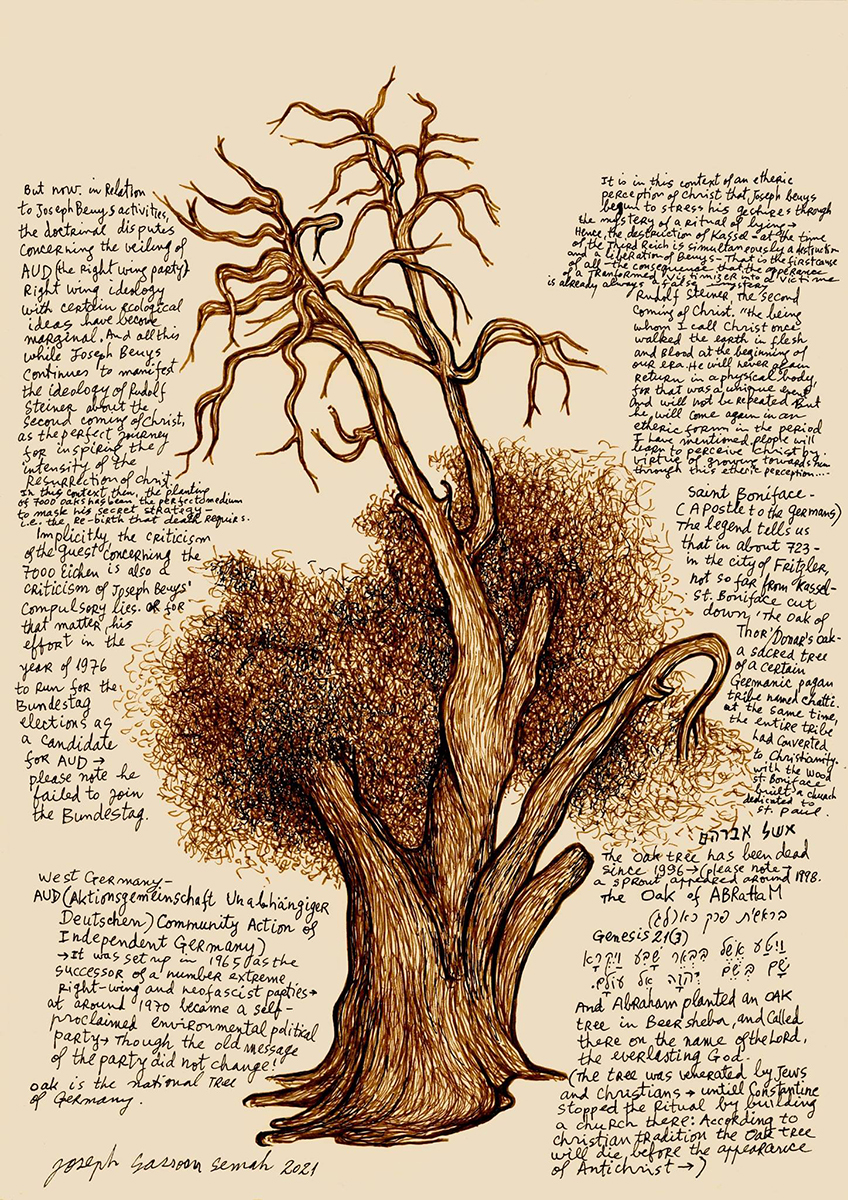 But now. in Relation
to Joseph Beuys activities,
the doctrinal disputes
concerning the veiling of
AUD (the right wing party)
Right wing ideology
with certain ecological
ideas have become
marginal. And all this
while Joseph Beuys
continues to manifest
the ideology of Rudolf
Steiner about the
second coming of Christ,
as the perfect journey
for inspiring the
intensity of the
Resurrection of Christ.
In this context then, the planting
of 7000 oaks has been the perfect medium
to mask his secret strategy –
i.e. the Re-birth that death requirs.
Implicitly the criticism
of the quest concerning the
7000 Eichen is also a
criticism of Joseph Beuys'
compulsory lies. or for
that matter, his
effort in the
year of 1976
to run for the
Bundestag
elections as
a candidate
for AUD →
please note he
failed to join
the Bundestag.
West Germany –
AUD (Aktionsgemeinschaft Unabhängiger
Deutschen) Community Action of
Independent Germany)
→ It was set up in 1965 as the
successor of a number extreme
right-wing and neofascist parties →
at around 1970 became a self-
proclaimed environmental political
party → Though the old message
of the party did not change!
oak is the national Tree
of Germany.
Joseph Sassoon Semah 2021
It is in this context of an etheric
perception of Christ that Joseph Beuys
begun to stress his gestures through
the mystery of a ritual of lying →
Hence, the destruction of Kassel – at the time
of the Third Reich is simultaneously a distruction
and a liberation of Beuys – That is the first cause
of all – the consequence that the apperance
of a Tranformed Victimizer into a Victim
is already always a false mystery
Rudolf Steiner, the second
coming of Christ. "the being
whom I call Christ once
walked the earth in flesh
and Blood at the beginning of
our era. He will never again
return in a physical body,
for that was a unique event
and will not be repeated But
he will come again in an
etheric form in the period
I have mentioned. people will
learn to perceive Christ by
virtue of growing towards him
through this etheric perception....
Saint Boniface –
(Apostle to the germans)
The legend tells us
that in about 723 –
in the city of Fritzler,
not so far from Kassel –
St. Boniface cut
down, 'The Oak of
Thor/Donar's Oak –
a sacred tree
of a certain
Germanic pagan
tribe named chatti.
at the same time,
the entire tribe
had converted
to Christianity.
with the wood
St Boniface
built a church
dedicated to
St. Paul.
אשל אברהם
The Oak tree has been dead
since 1996 → (please note →
a sprout appeared around 1998.
The Oak of ABRaHaM
בראשית פרק כא (לג)
Genesis 21(3)
וַיִּטַּע אֶשֶׁל בִּבְאֵר שָׁבַע וַיִּקְרָא
שָׁם בְּשֵׁם יְהוָה אֵל עוֹלָם.
And Abraham planted an oak
tree in Beersheba, and called
there on the name of the Lord,
the everlasting God.
(The tree was venerated by Jews
and Christians → untill Constantine
stopped the Ritual by building
a church there: According to
christian tradition the Oak tree
will die before the appearance
of Antichrist →)